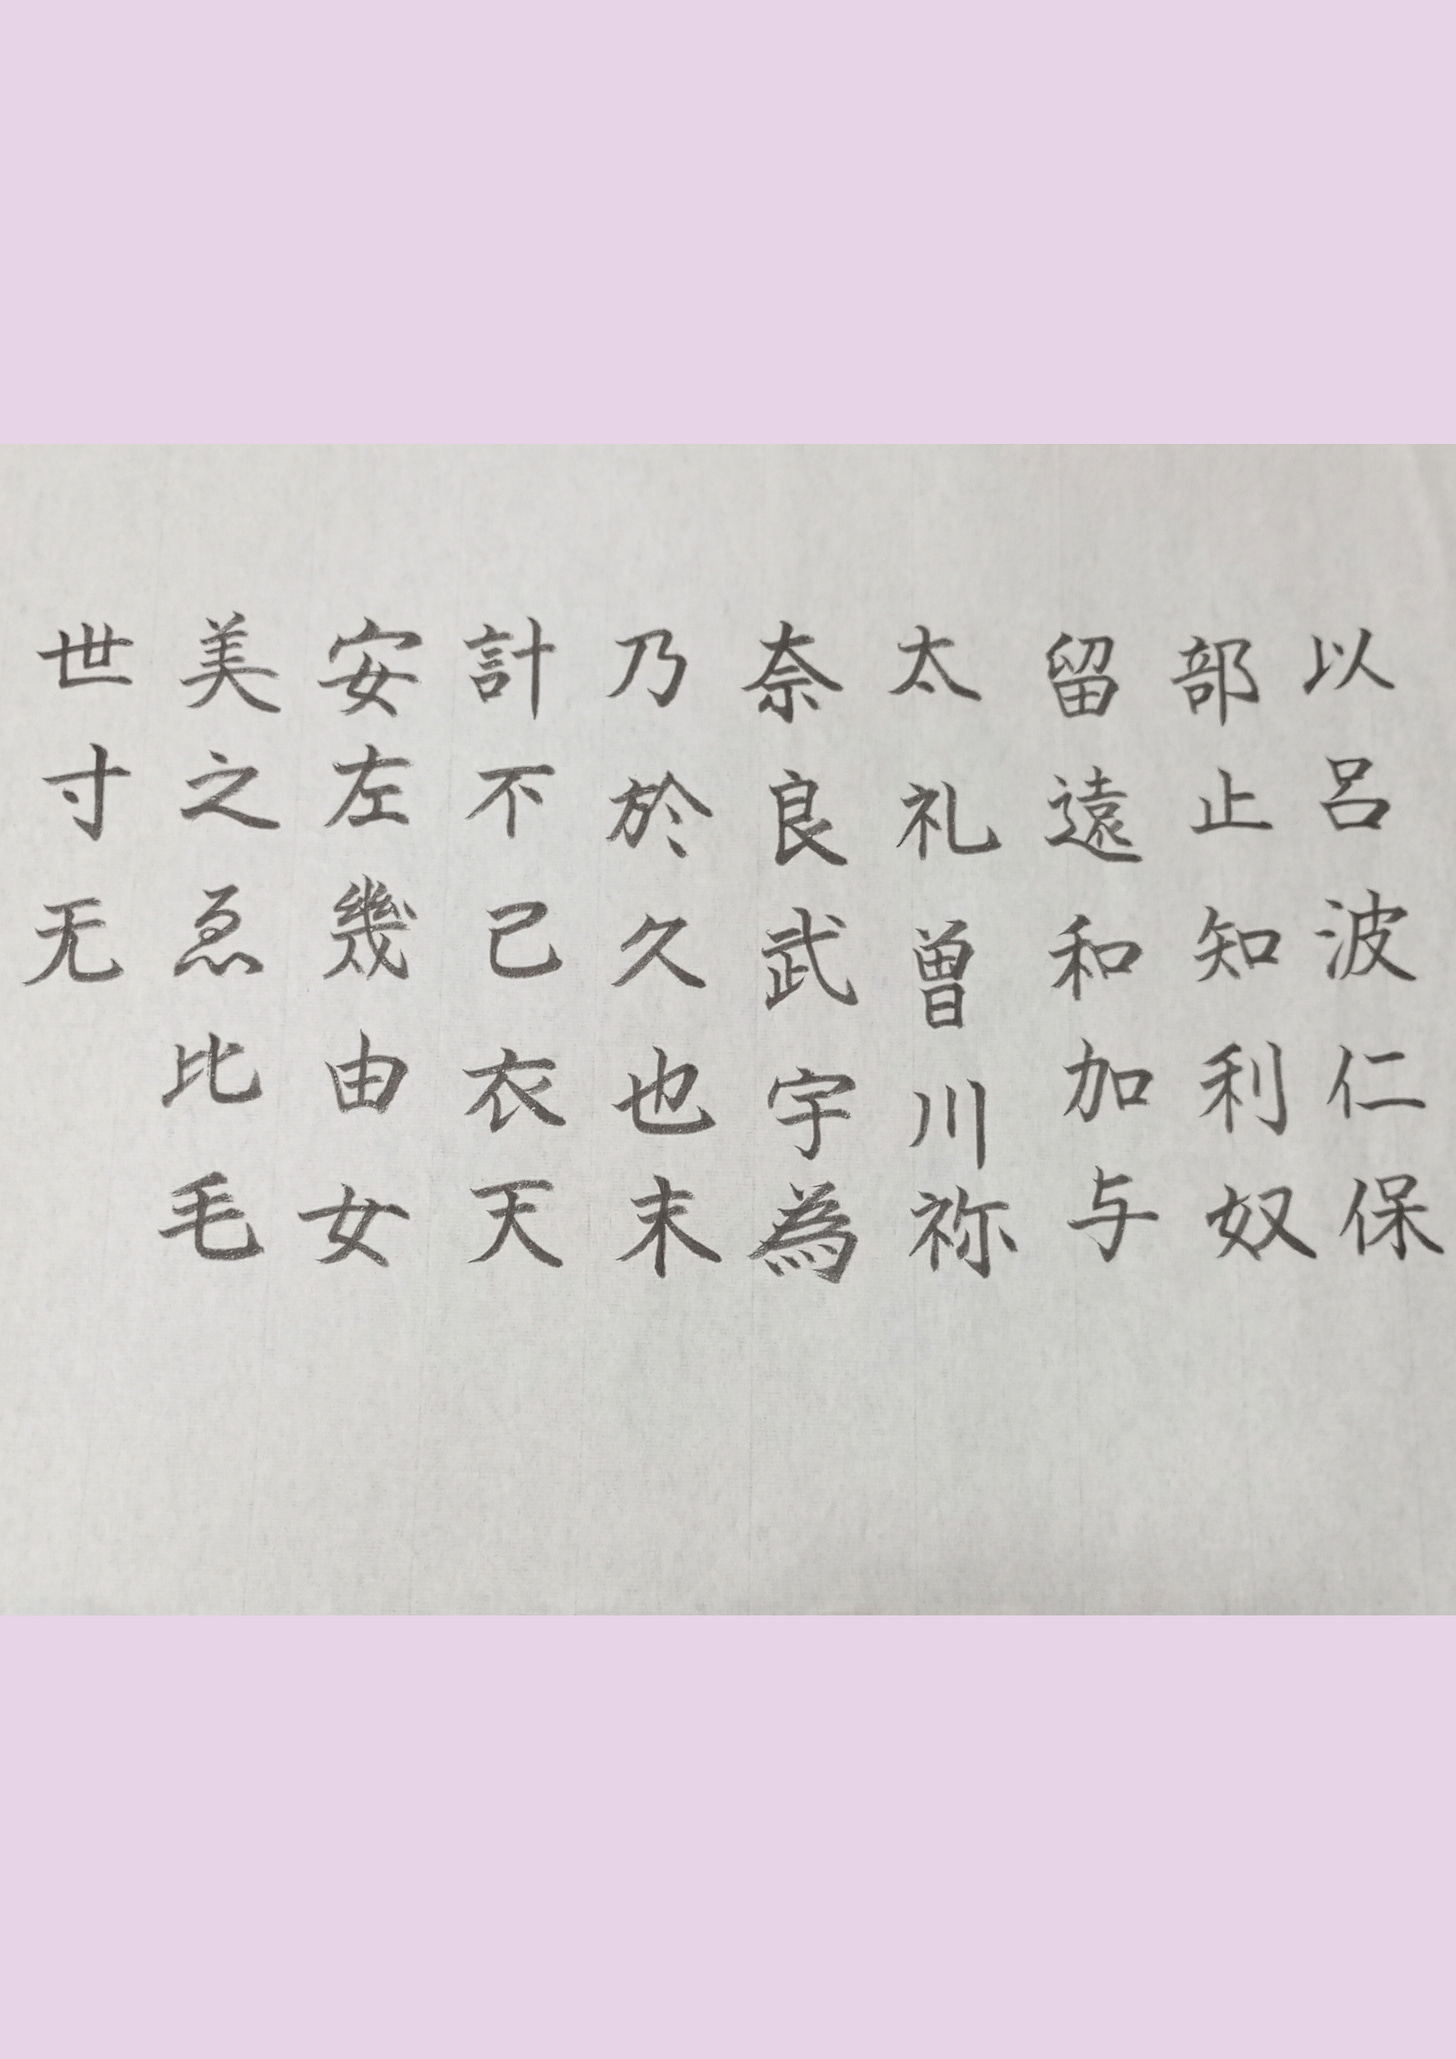 以呂波仁保
部止知利奴
留遠和加与
太礼曽川祢
奈良武宇為
乃於久也末
計不己衣天
安左幾由女
美之恵比毛
世寸无